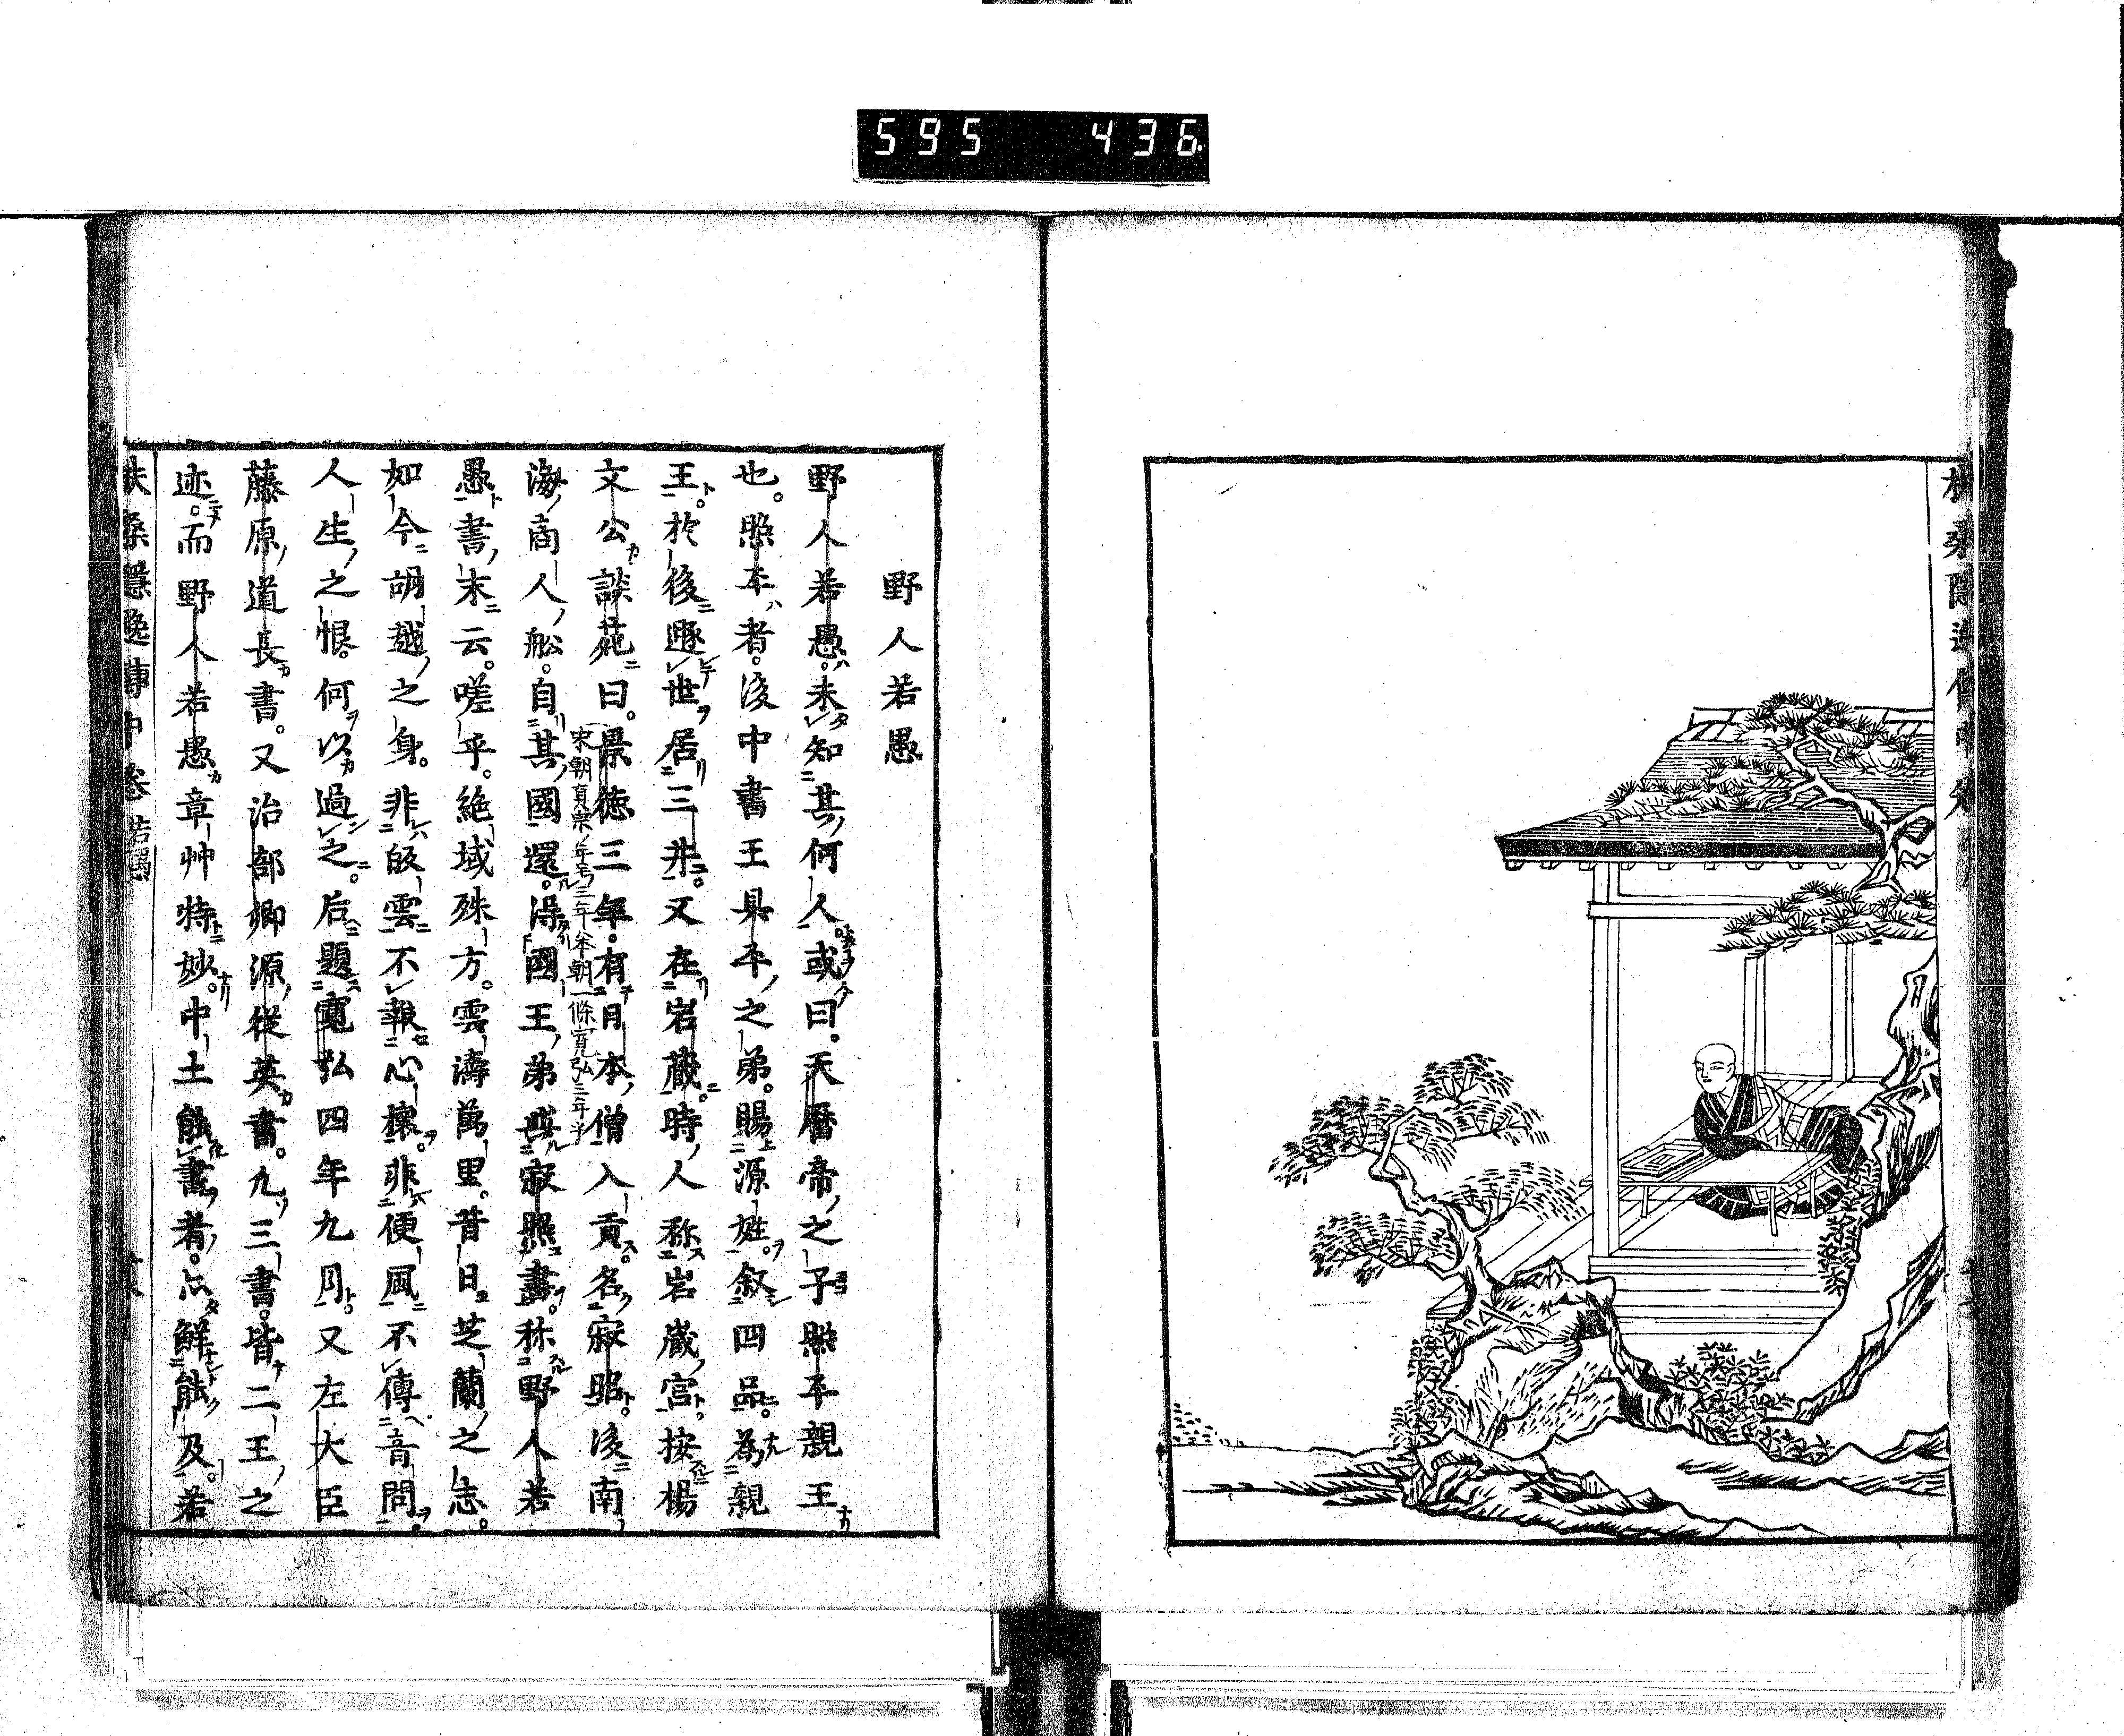 595 436
野人若愚
野人若愚。未知其何人。或曰。天暦帝之子照平親王
也。照平者。後中書王具平之弟。賜源姓。叙四品。為親
王。於後遯世居三井。又在岩蔵。時人称岩蔵宮。按楊
文公談苑曰。景徳三年。有日本僧入貢。名寂昭。後南
宋朝真宗年号三年本朝一條寛弘三年
海商人舩。自其國還。得國王弟與寂照書。称野人若
愚書。末云。嗟乎。絶域殊方。雲濤萬里。昔日芝蘭之志。
如今胡越之身。非皈雲不報心懐。非便風不傳音問。
人生之恨。何以過之。后題寛弘四年九月。又左大臣
藤原道長書。又治部卿源從英書。九三書。皆二王之
迹。而野人若愚章艸特妙。中土能書者。亦鮮能及。若
扶桑隱逸傳中卷 若愚